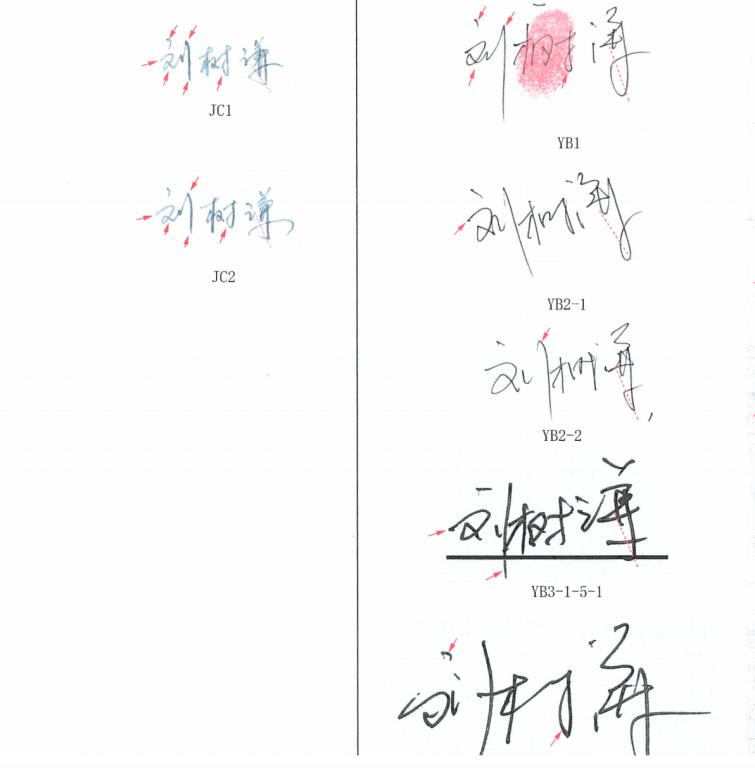 刘树谦
JC1
刘树谦
JC2
刘树谦
YB1
刘树谦
YB2-1
刘树谦
YB2-2
刘树谦
YB3-1-5-1
刘树谦